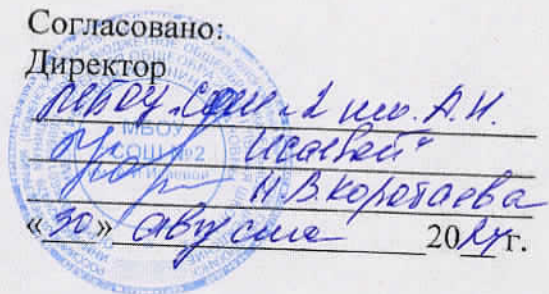 Согласовано:
Директор
МБОУ "СОШ №2 им. А.Н.
Исаевой"
Н.В. Коротаева
«30» августа 2024 г.
МБОУ
СОШ №2